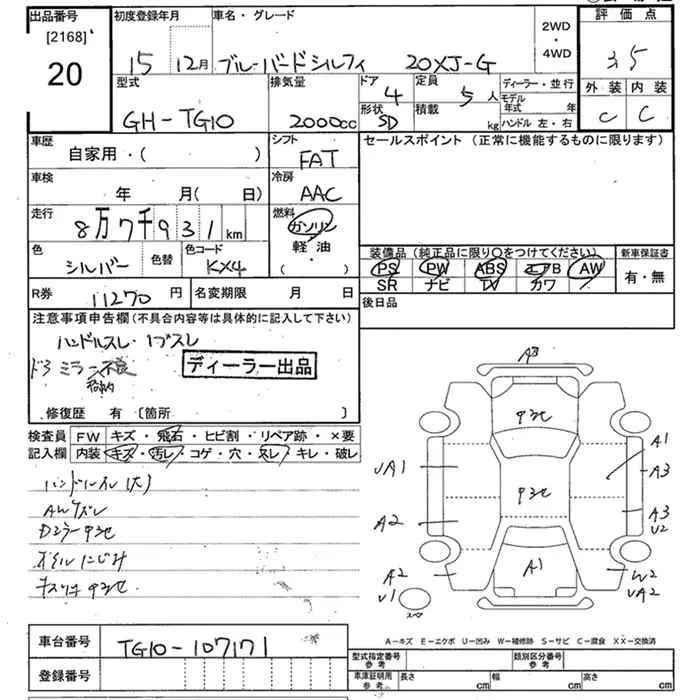 出品番号 初度登録年月 車名・グレード 評価点
[2168]
20
15 12月 ブルーバードシルフィ 20XJ-G
2WD
・
4WD
3 5
型式 排気量 ドア 定員 ディーラー・並行 外装 内装
GH-TG10 2000cc 4 5人 モデル年式 年
形状 積載 ハンドル 左・右
SD kg
C C
車歴 シフト セールスポイント (正常に機能するものに限ります)
自家用・( ) FAT
車検 冷房
年 月( 日) AAC
走行 燃料
8万7千931km ガソリン
軽・油
・( )
色 色替 色コード
シルバー KX4
装備品 (純正品に限り○をつけてください) 新車保証書
PS PW ABS エアB AW 有・無
SR ナビ TV カワ
R券 11270円 名変期限 月 日 後日品
注意事項申告欄(不具合内容等は具体的に記入して下さい)
ハンドルスレ・
ミラー不良
ディーラー出品
修復歴 有 〔箇所 〕
検査員 FW キズ・飛石・ヒビ割・リペア跡・×要
記入欄 内装 キズ・汚レ・コゲ・穴・スレ・キレ・破レ
ハンドルスレ(大)
AWズレ
Dミラー
オイルにじみ
A3
UA1
A1
A3
A2
A3
U2
A1
A2
U1
W2
UA2
A=キズ E=エクボ U=凹み W=補修跡 S=サビ C=腐食 XX=交換済
車台番号 TG10-107171
登録番号
型式指定番号 参考 類別区分番号 参考
車庫証明用 参考 長さ cm 幅 cm 高さ cm